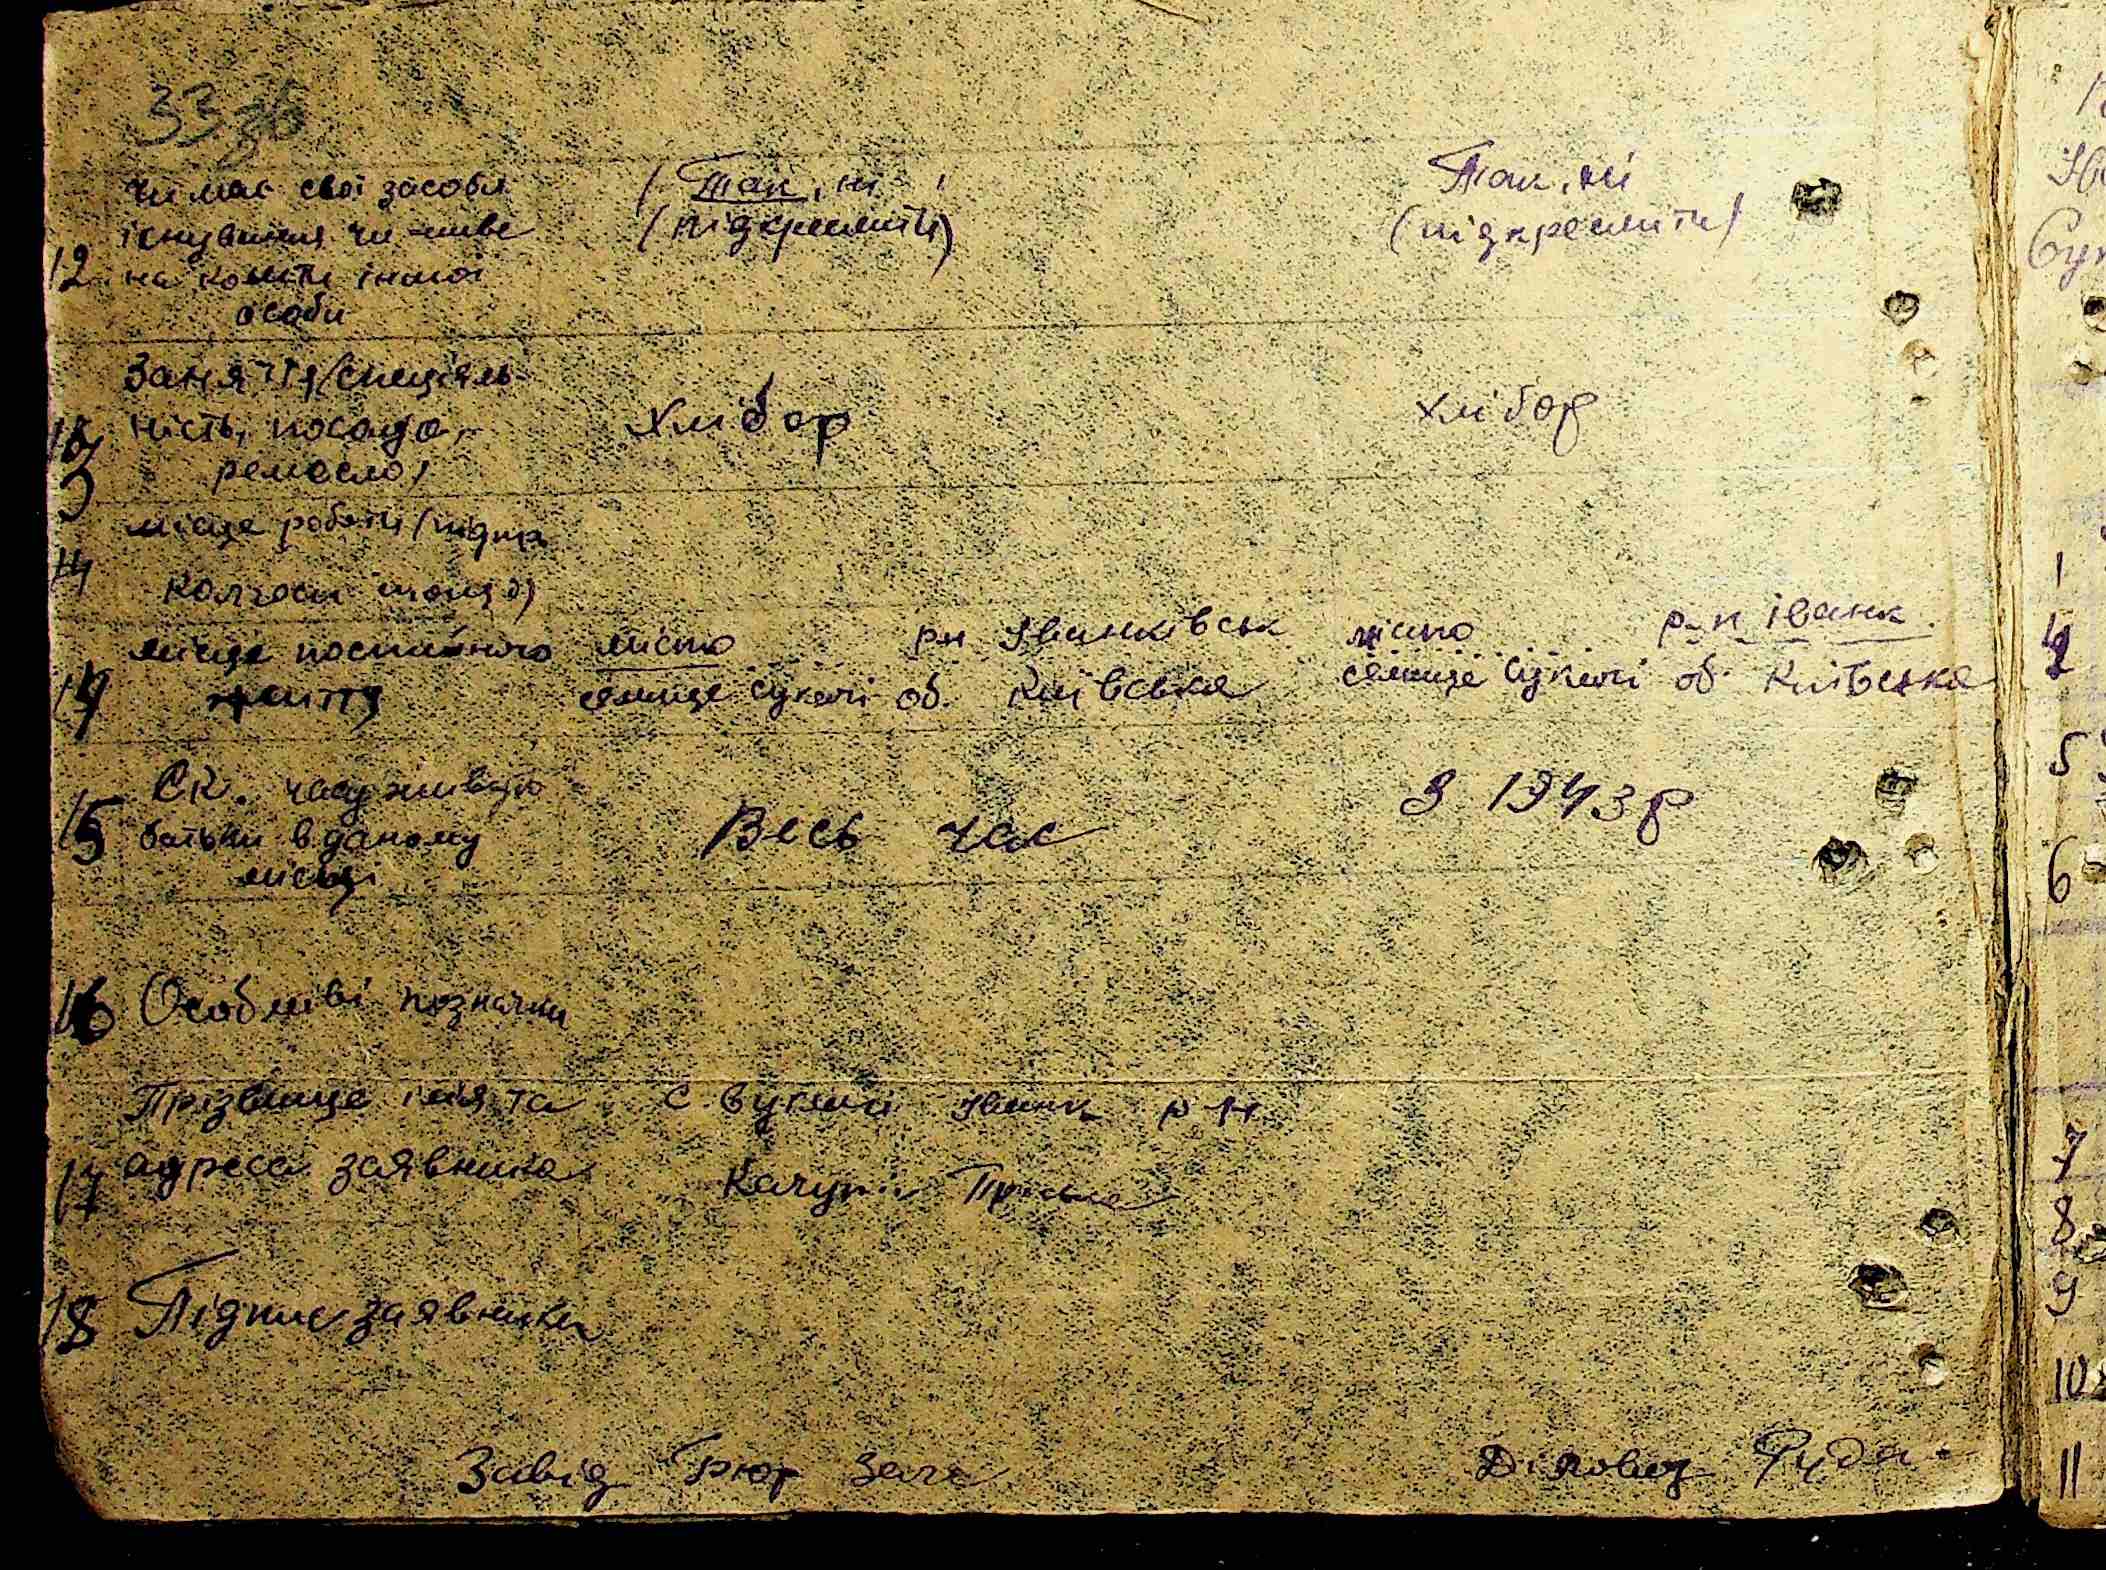 33 зв
чи має свої засоби (Так, ні Так, ні
існування чи живе (підкреслити) (підкреслити)
12 на кошти іншої
особи
Заняття/спеціяль-
13 ність, посада, Хлібор хлібор
ремесло/
місце роботи/підпр
14 колгосп тощо)
місце постійного місто р-н Іванківськ місто р-н іванк.
14 життя селище Сукачі об. Київська селище Сукачі об. Київська
Ск. часу живуть
15 батьки в даному Весь час З 1943 р
місці
16 Особливі позначки
Прізвище імя та с. Іванк р-н
17 адреса заявника
18 Підпис заявника
Завід Бюр Загс Діловод Руд
1
5
6
7
8
9
10
11